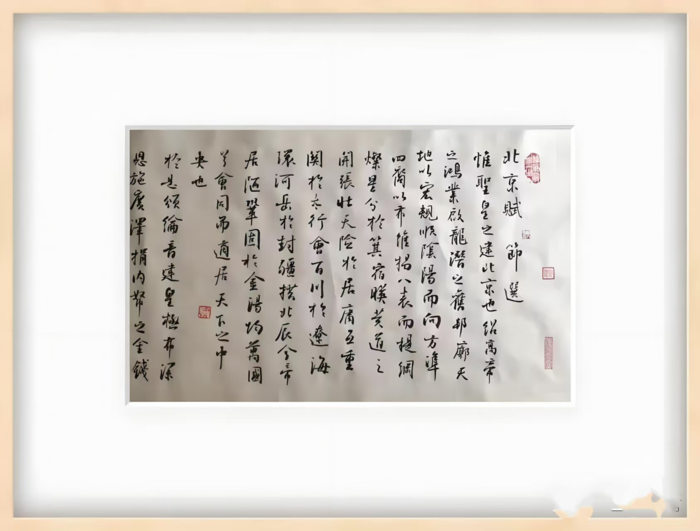 北京賦 節選
惟聖皇之建北京也紹高帝
之鴻業啟龍潛之舊邦廓天
地以宏規順陰陽而向方準
四裔以布維揭八表而提綱
燦星分於箕宿映黃道之
開張壯天險於居庸亙重
關於太行會百川於遼海
環河岳於封疆拱北辰兮帝
居陋鞏固於金湯均萬國
兮會同而適居天下之中
央也
於是頒綸音建皇極布深
恩施廣澤捐內帑之金錢